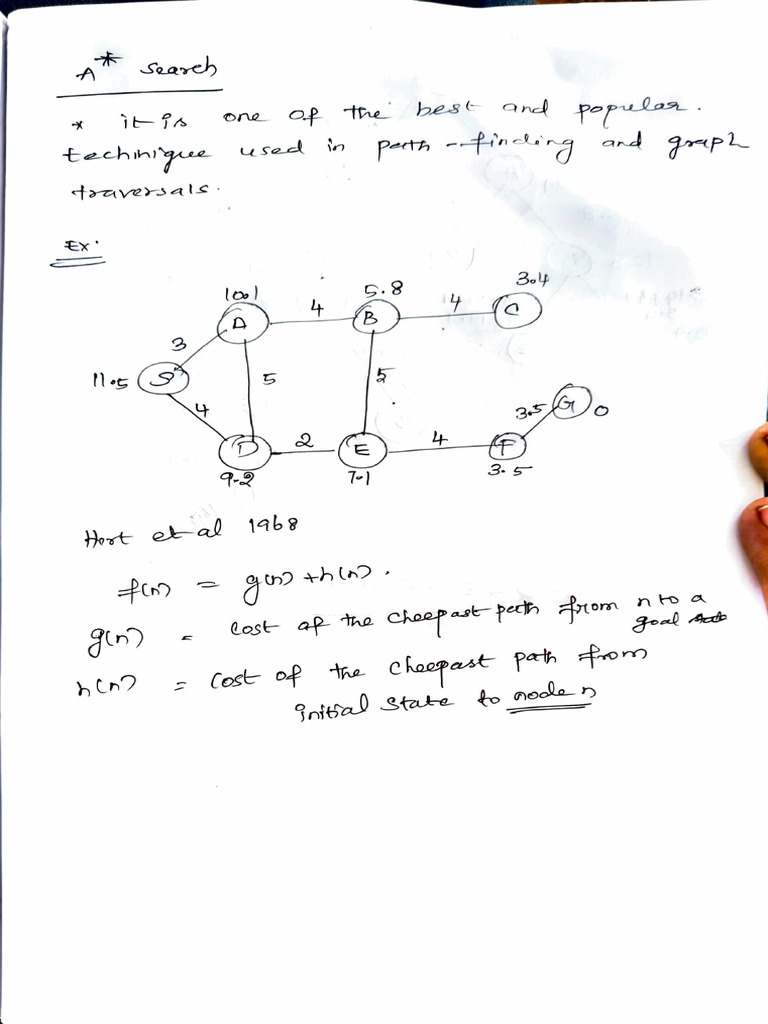 A* Search
* it is one of the best and popular.
techinique used in path-finding and graph
traversals.
Ex.
10.1 5.8 3.4
A 4 B 4 C
3
11.5 S 5 5
4 3.5 G 0
D 2 E 4 F
9.2 7.1 3.5
Hort et al 1968
f(n) = g(n) + h(n).
g(n) = cost of the cheepast path from n to a
goal state
h(n) = cost of the cheepast path from
initial state to node n